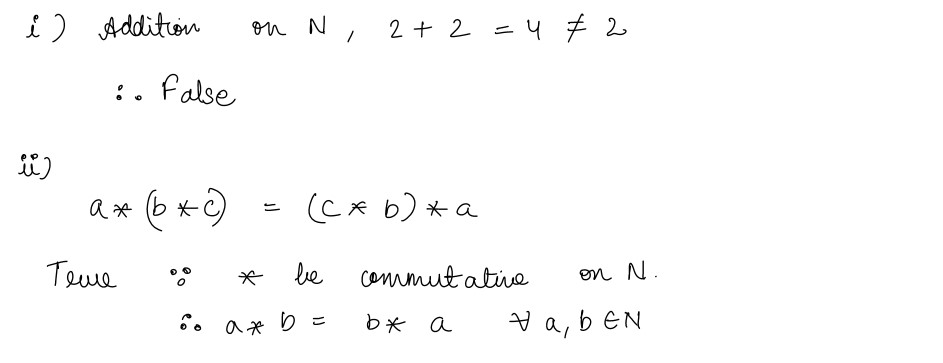 i) Addition on N, 2 + 2 = 4 ≠ 2
∴ False
ii)
a * (b * c) = (c * b) * a
True ∵ * be commutative on N.
∴ a * b = b * a ∀ a, b ∈ N